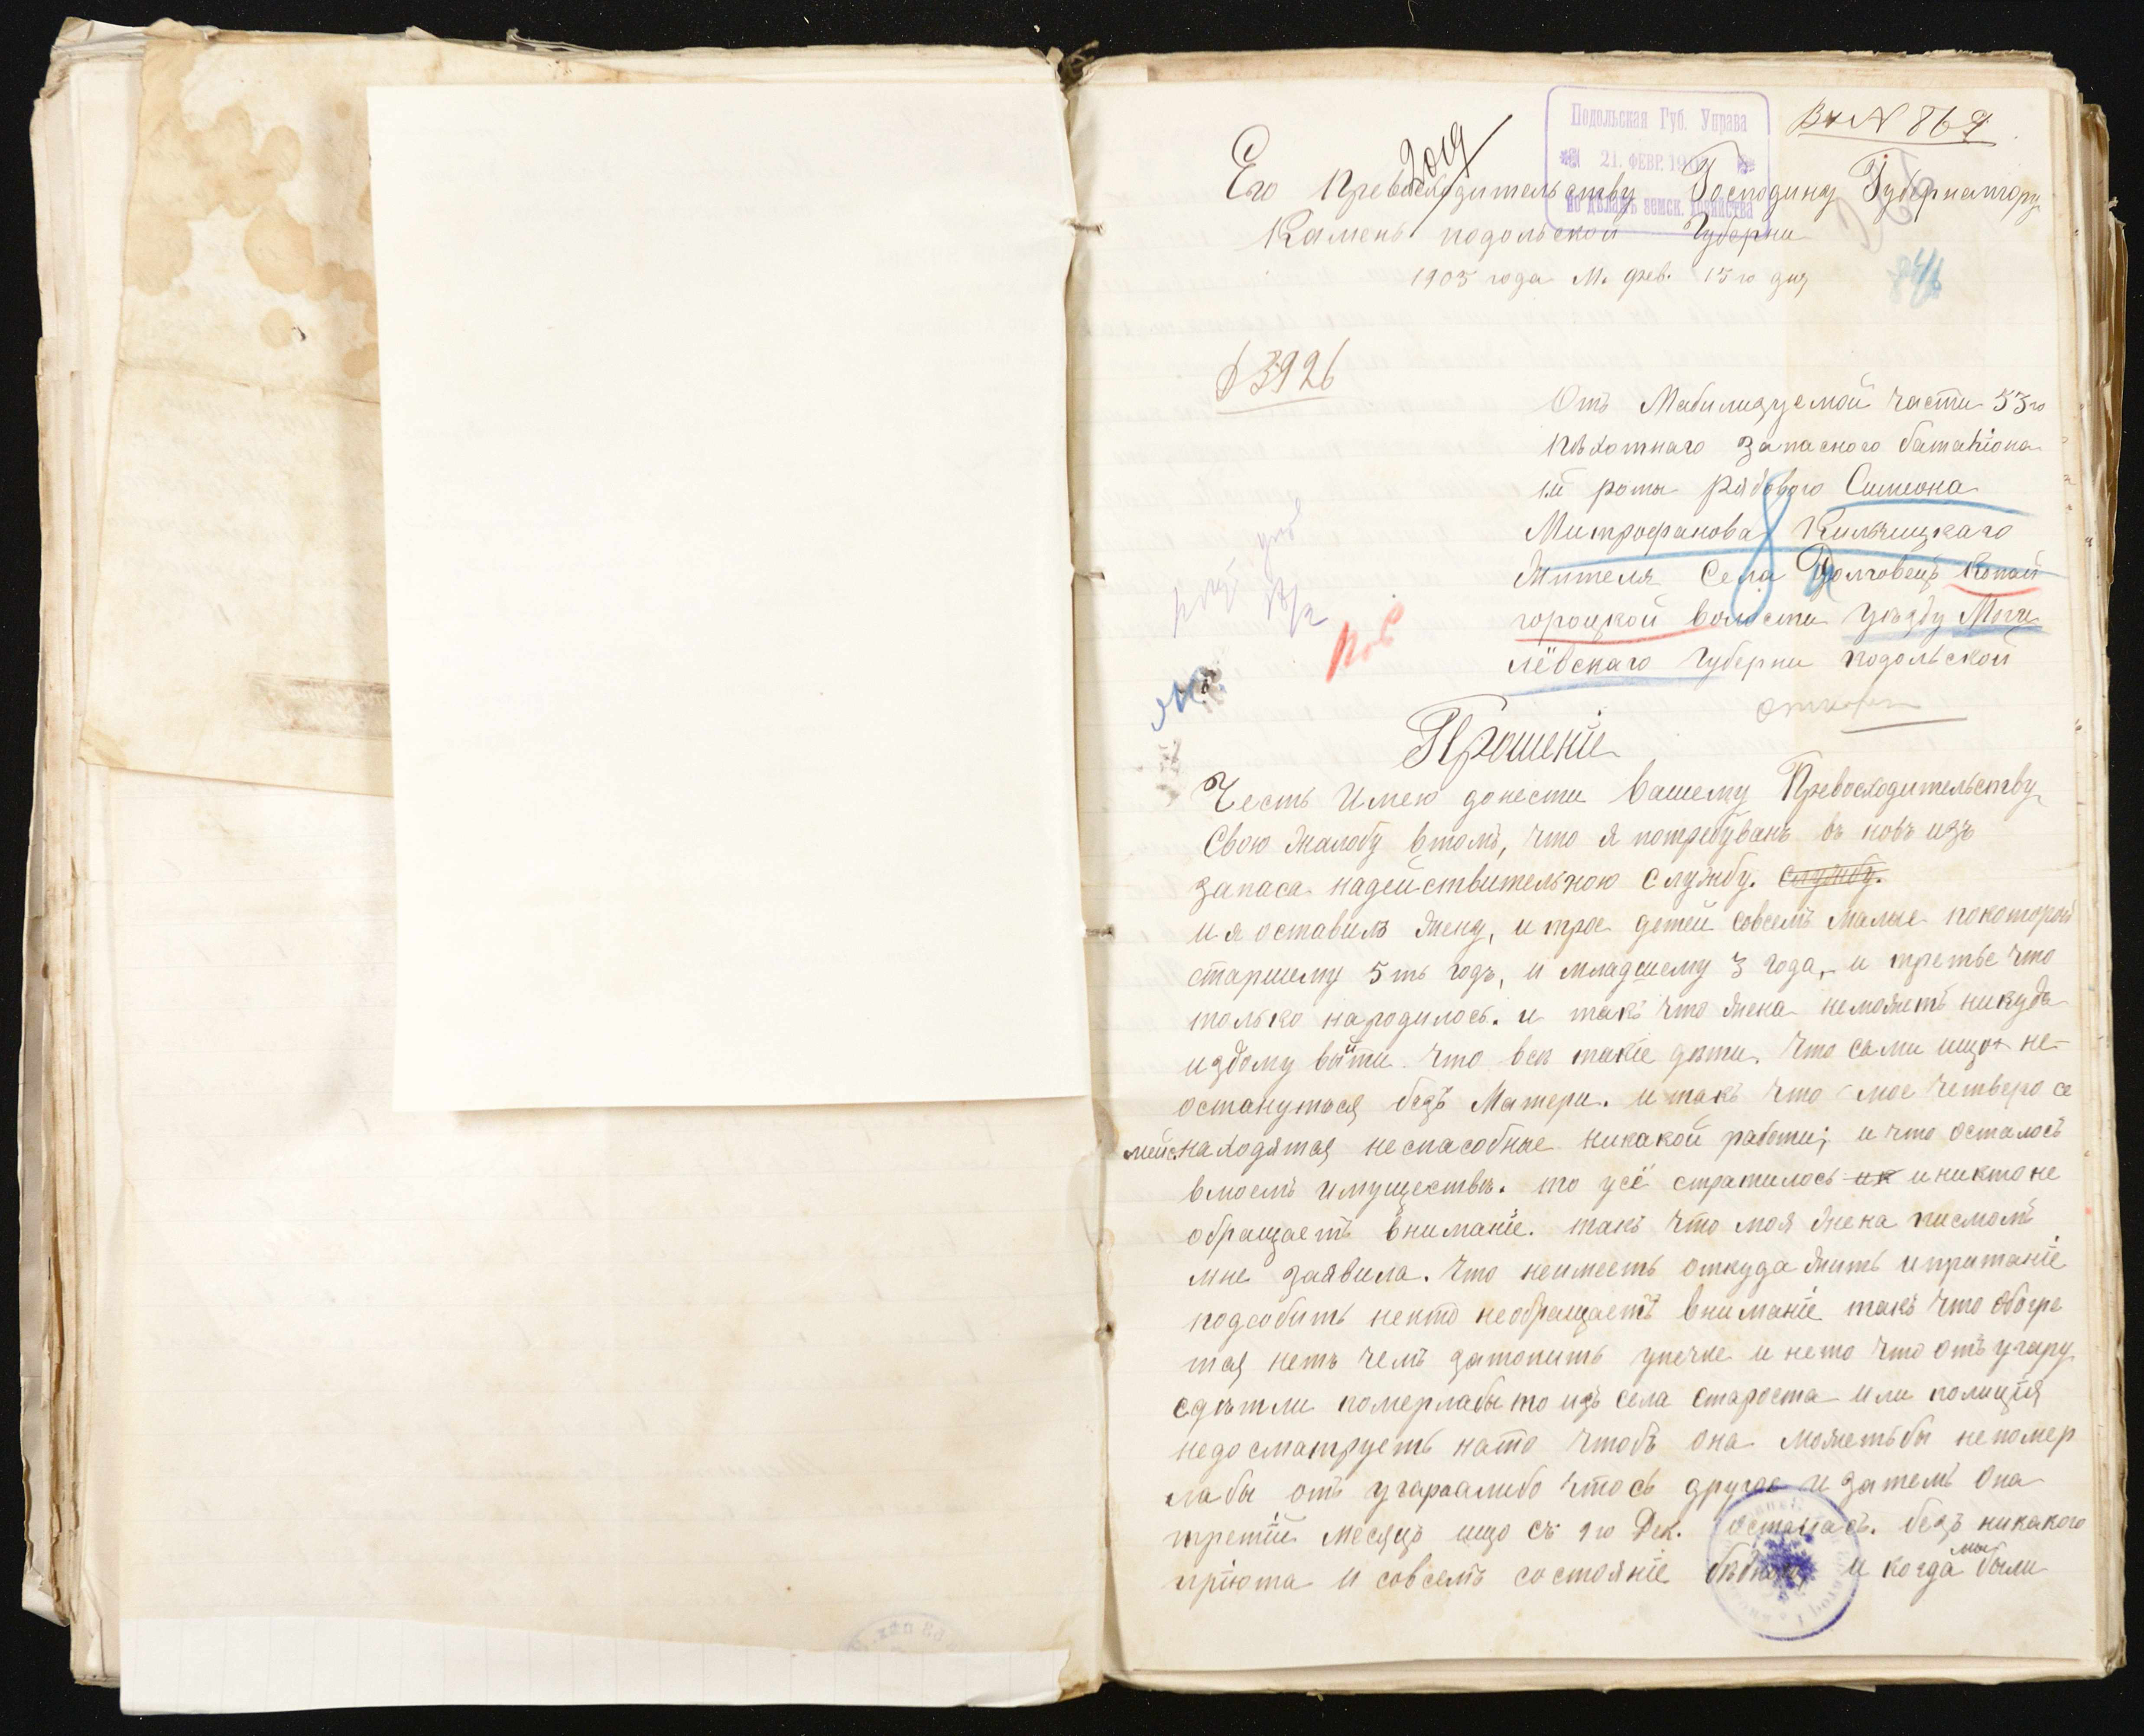 Вх № 867
Подольская Губ. Управа
21. ФЕВР. 190
по дѣламъ земск. хозяйства
Его Превосходительству Господину Губернатору
Камень подольской Губерни
1905 года М. фев. 15го дня
3926
Отъ Мабилизуемой части 53го
пѣхотнаго запасного баталіона
1й роты рядового Симиона
Митрофанова Кильчицкаго
жителя Села Долговецъ Копай
городкой волости уѣзду Моги
лёвскаго Губерни подольской
Прошеніе
Честь Имею донести Вашему Превосходительству
Свою жалобу втомъ, что я потребуванъ въ новъ изъ
запаса надействительною службу. службу.
и я оставилъ жену, и трое детей совсемъ малые покоторой
старшему 5ть годъ, и младшему 3 года, и третье что
только народилось. и такъ что жена неможитъ никуда
издому выйти что все такіе дѣти. что сами ищо не-
останутся безъ Матери. и такъ что мое четверо се
мейс. находятся неспасобные никакой работи; и что осталось
вмоемъ имуществѣ. то усё стратилось ик иникто не
обращаетъ вниманіе. такъ что моя жена писмомъ
мне заявила. что неимеетъ откуда жить ипританіе
подсобить некто необращаетъ вниманіе такъ что обогре
тся нетъ чемъ затопить упечке и нето что отъ угару
сдѣтми померлабы то изъ села староста или полиція
недосматруетъ нато чтобъ она можетьбы непомер
лабы отъ угараалибо чтось другое и затемъ она
третій месяцъ ищо съ 1го Дек. осталась. безъ никакого
пріюта и совсемъ состояніе бѣдного и когда мы были